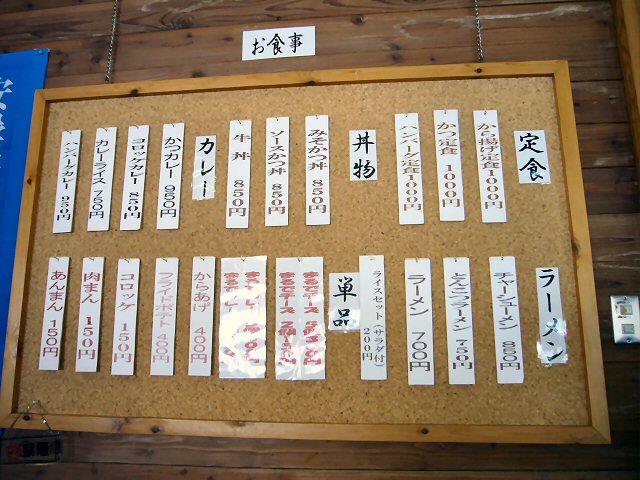 お食事
定食
から揚げ定食 1000円
かつ定食 1000円
ハンバーグ定食 1000円
丼物
みそかつ丼 850円
ソースかつ丼 850円
牛丼 850円
カレー
かつカレー 950円
コロッケカレー 850円
カレーライス 750円
ハンバーグカレー 950円
ラーメン
チャーシューメン 850円
とんこつラーメン 750円
ラーメン 700円
ライスセット(サラダ付) 200円
単品
からあげ 400円
フライドポテト 400円
コロッケ 150円
肉まん 150円
あんまん 150円